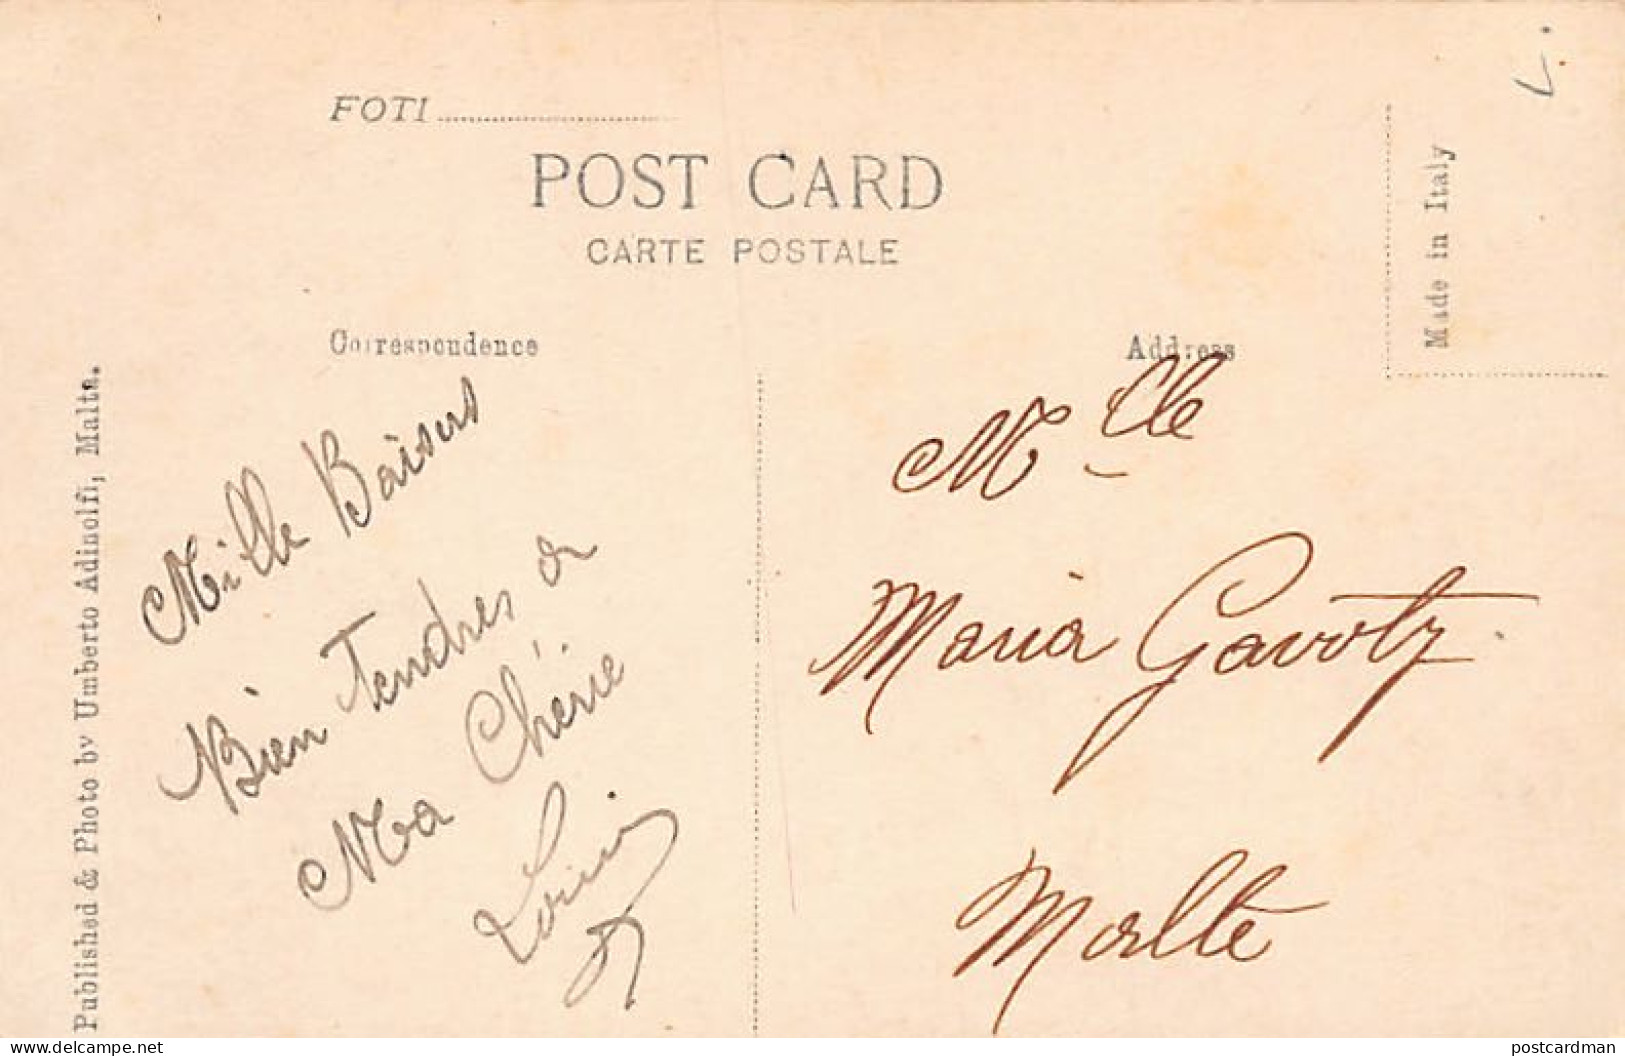 FOTI
POST CARD
CARTE POSTALE
Correspondence
Address
Made in Italy
L.
Published & Photo by Umberto Adinolfi, Malta.
Mille Baisers
Bien Tendres à
Ma Chérie
Mlle
Maria Gavoty
Malte
www.delcampe.net
postcardman